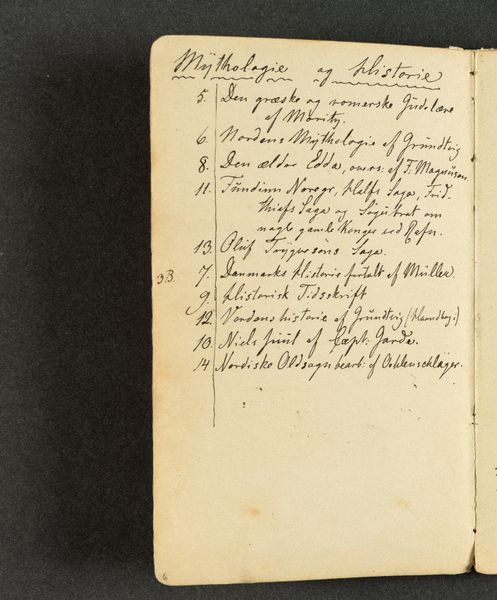 Mÿthologie og Historie
5. Den græske og romerske Gudelære
af Moritz.
6. Nordens Mÿthologie af Grundtvig
8. Den ældre Edda, overs: af F. Magnusen
11. Fundinn Noregr, Halfs Saga, Frid-
thiofs Saga og Sögubrot om
nogle gamle Konger ved Rafn.
13. Oluf Trÿgvesöns Saga.
3B. 7. Danmarks Historie fortalt af Müller.
9. Historisk Tidsskrift
12. Verdens historie af Grundtvig (Haandbog:)
10. Niels Juul af Capt: Garde.
14 Nordiske Oldsagn bearb: af Oehlenschläger.
6